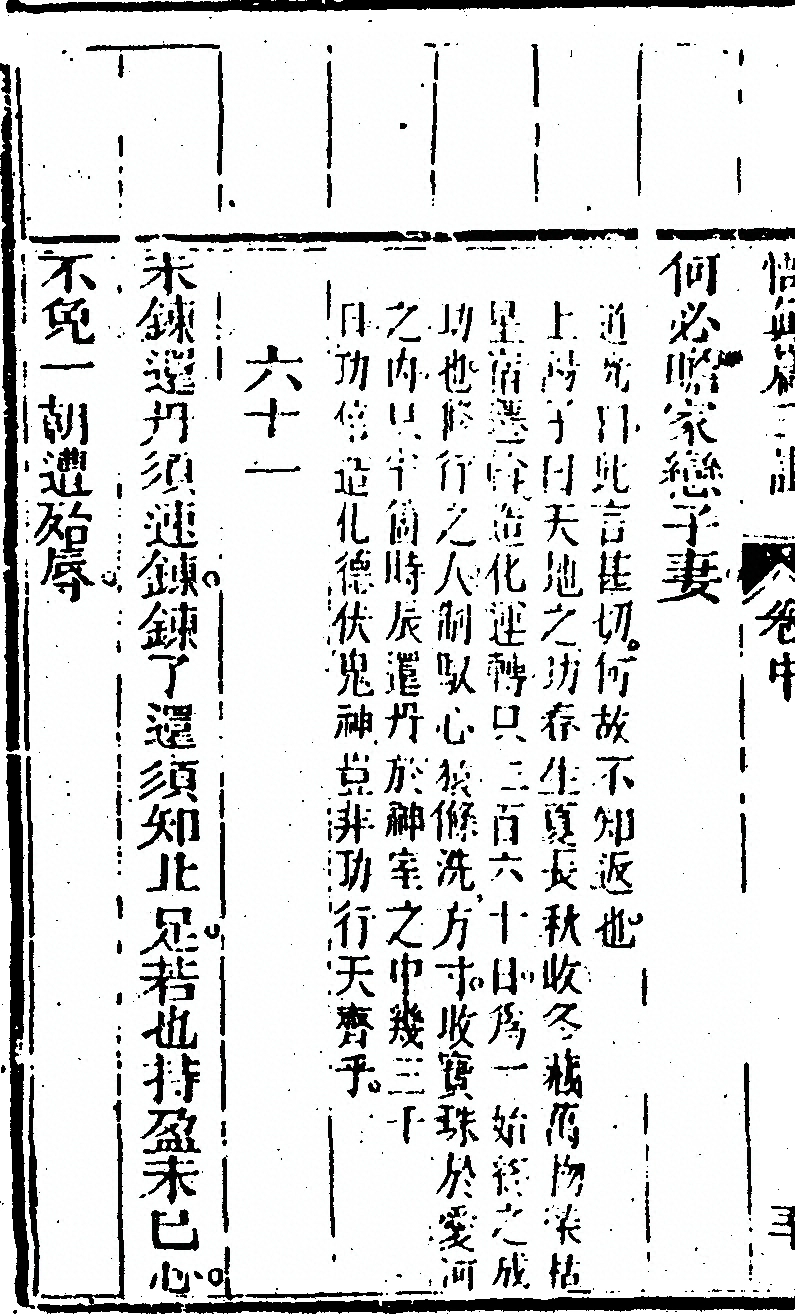 悟真篇三註 卷中
何必貪家戀子妻
道光曰此言甚切何故不知返也
上陽子曰天地之功春生夏長秋收冬藏萬物榮枯
星宿璇斡造化運轉只三百六十日爲一始終之成
功也修行之人制馭心猿滌洗方寸收寶珠於愛河
之內只半箇時辰還丹於神室之中幾三千
日功倍造化德伏鬼神豈非功行天齊乎
六十一
未鍊還丹須速鍊鍊了還須知止足若也持盈未已心
不免一朝遭殆辱